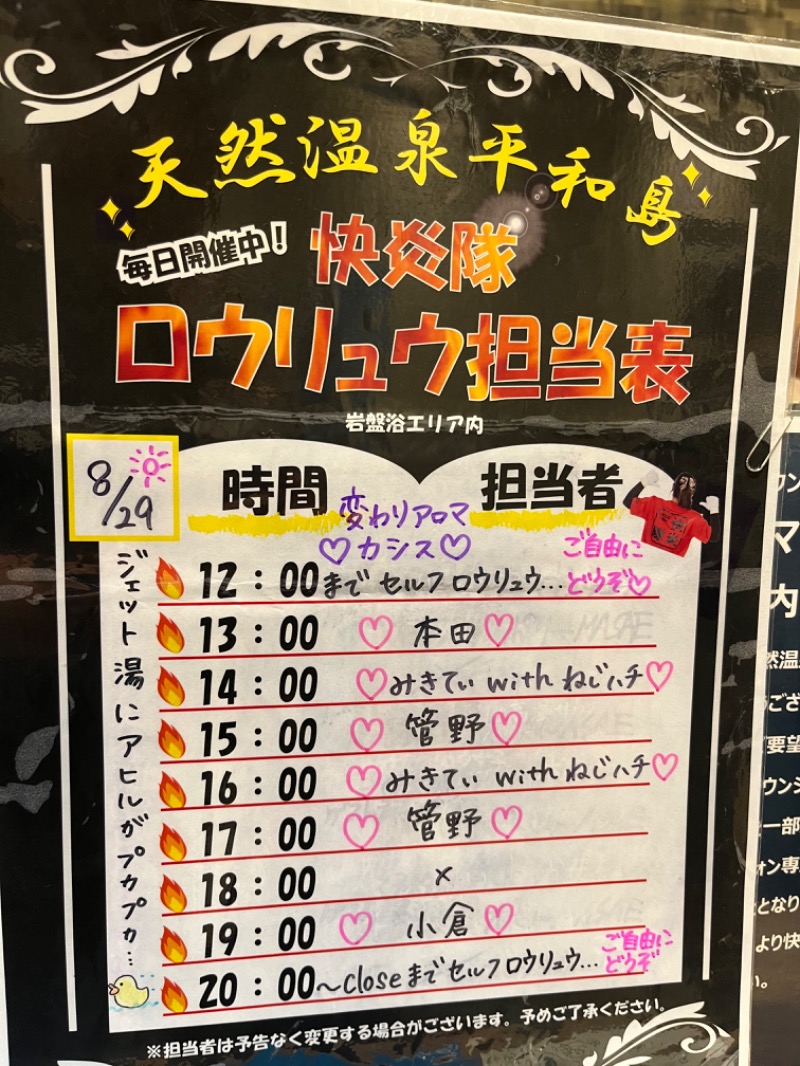 天然温泉平和島
毎日開催中！
快炎隊
ロウリュウ担当表
岩盤浴エリア内
8/29
時間
担当者
変わりアロマ
♡カシス♡
12：00まで セルフロウリュウ…ご自由にどうぞ♡
13：00 ♡ 本田 ♡
14：00 ♡みきてぃ with ねじハチ♡
15：00 ♡ 管野 ♡
16：00 ♡みきてぃ with ねじハチ♡
17：00 ♡ 管野 ♡
18：00 ×
19：00 ♡ 小倉 ♡
20：00〜closeまでセルフロウリュウ…ご自由にどうぞ
ジェット湯にアヒルがプカプカ…
※担当者は予告なく変更する場合がございます。予めご了承ください。